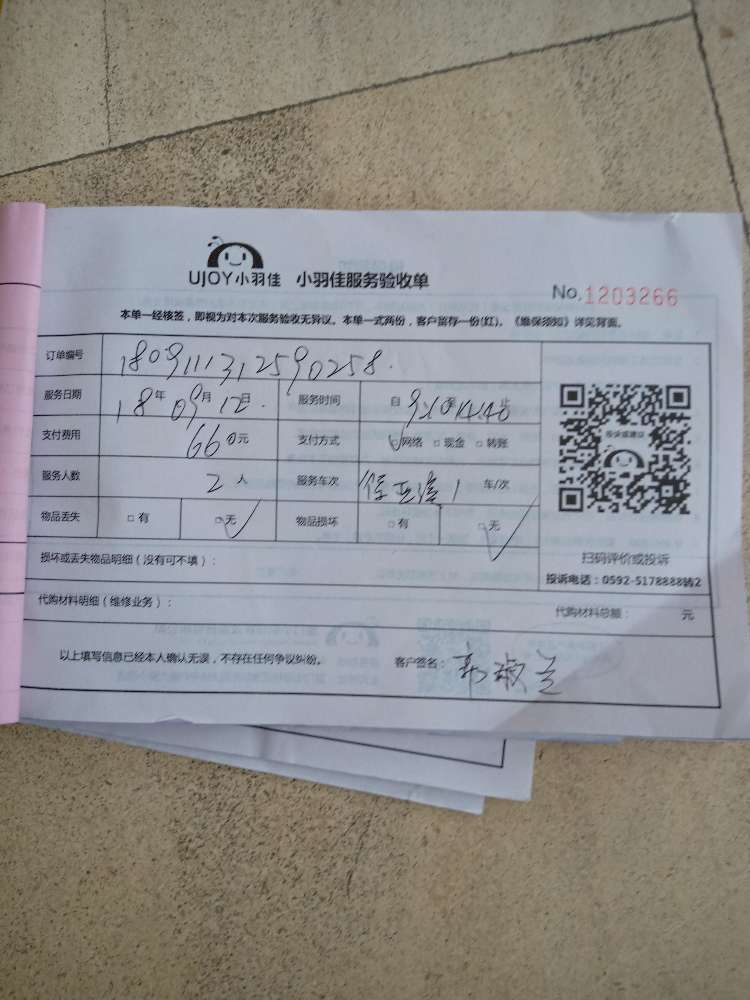 UJOY小羽佳 小羽佳服务验收单
No.1203266
本单一经核签，即视为对本次服务验收无异议。本单一式两份，客户留存一份(红)。《维保须知》详见背面。
订单编号 1809111312590258
服务日期 18年09月12日 服务时间 自 至 止
支付费用 660元 支付方式 ☑网络 □现金 □转账
服务人数 2人 服务车次 1 车/次
物品丢失 □有 ☑无 物品损坏 □有 ☑无
投诉或建议
扫码评价或投诉
投诉电话：0592-5178888转2
损坏或丢失物品明细（没有可不填）：
代购材料明细（维修业务）：
代购材料总额： 元
以上填写信息已经本人确认无误，不存在任何争议纠纷。 客户签名：